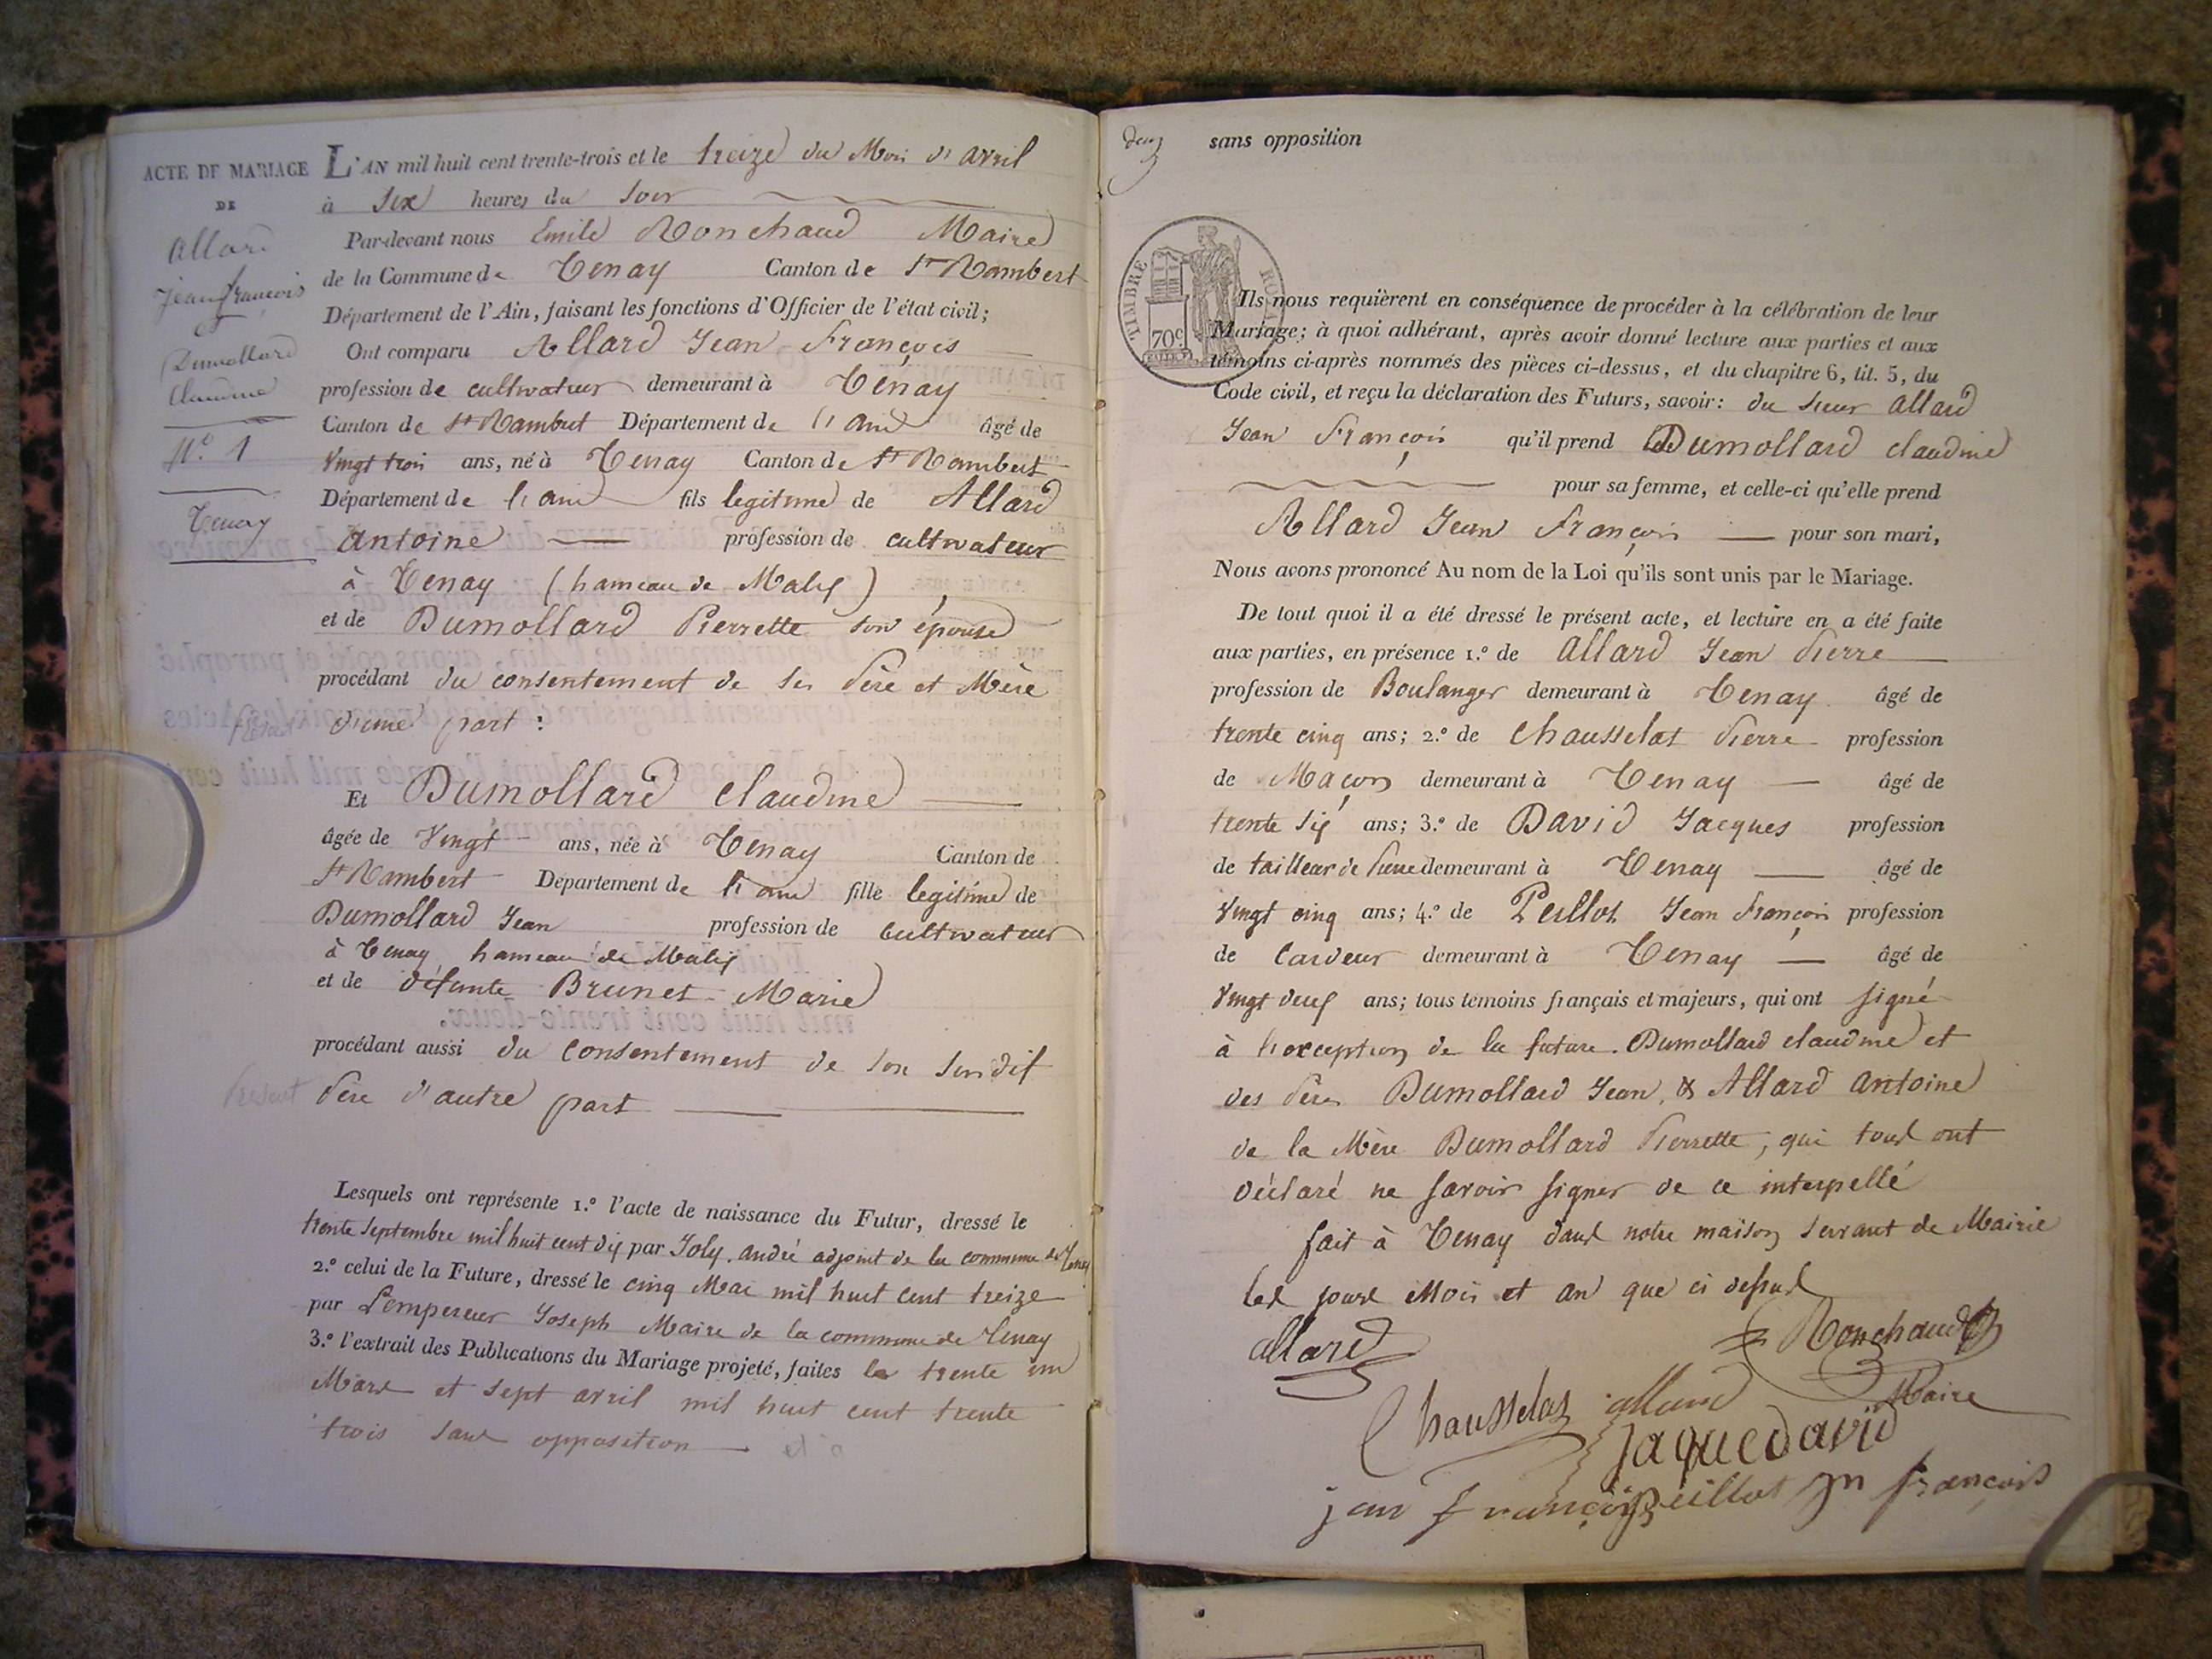 ACTE DE MARIAGE
DE
Allard
Jean françois
et
Dumollard
Claudine
N.º 1
Tenay
L'AN mil huit cent trente-trois et le treize du Mois d'avril
à six heures du soir
Par-devant nous Emile Ronchaud Maire
de la Commune de Tenay Canton de St Rambert
Département de l'Ain, faisant les fonctions d'Officier de l'état civil;
Ont comparu Allard Jean François
profession de cultivateur demeurant à Tenay
Canton de St Rambert Département de l'ain âgé de
Vingt trois ans, né à Tenay Canton de St Rambert
Département de l'ain fils legitime de Allard
Antoine profession de cultivateur
à Tenay (hameau de Malix)
et de Dumollard Pierrette son épouse
procédant du consentement de ses Père et Mère
d'une part :
Et Dumollard Claudine
âgée de Vingt ans, née à Tenay Canton de
St Rambert Département de l'ain fille legitime de
Dumollard Jean profession de cultivateur
à Tenay hameau de Malix
et de défunte Brunet Marie
procédant aussi du consentement de son susdit
present Père d'autre part
Lesquels ont représenté 1.º l'acte de naissance du Futur, dressé le
trente Septembre mil huit cent dix par Joly André adjoint de la commune de Tenay
2.º celui de la Future, dressé le cinq Mai mil huit cent treize
par Lempereur Joseph Maire de la commune de Tenay
3.º l'extrait des Publications du Mariage projeté, faites le trente un
Mars et sept avril mil huit cent trente
trois sans opposition
deux sans opposition
TIMBRE ROYAL
70c
Ils nous requièrent en conséquence de procéder à la célébration de leur
Mariage; à quoi adhérant, après avoir donné lecture aux parties et aux
témoins ci-après nommés des pièces ci-dessus, et du chapitre 6, tit. 5, du
Code civil, et reçu la déclaration des Futurs, savoir: du sieur Allard
Jean François qu'il prend Dumollard claudine
pour sa femme, et celle-ci qu'elle prend
Allard Jean François pour son mari,
Nous avons prononcé Au nom de la Loi qu'ils sont unis par le Mariage.
De tout quoi il a été dressé le présent acte, et lecture en a été faite
aux parties, en présence 1.º de Allard Jean Pierre
profession de Boulanger demeurant à Tenay âgé de
trente cinq ans; 2.º de Chausselat Pierre profession
de Maçon demeurant à Tenay âgé de
trente six ans; 3.º de David Jacques profession
de tailleur de Pierre demeurant à Tenay âgé de
Vingt cinq ans; 4.º de Peillot Jean François profession
de Cardeur demeurant à Tenay âgé de
Vingt deux ans; tous témoins français et majeurs, qui ont signé
à l'exception de la future Dumollard claudine et
des Pères Dumollard Jean, & Allard Antoine
de la Mère Dumollard Pierrette, qui tous ont
déclaré ne savoir signer de ce interpellé
fait à Tenay dans notre maison servant de Mairie
les jours Mois et an que ci dessus
allard Ronchaud
Chausselas allard Maire
jaque david
jean françois peillot jn françois